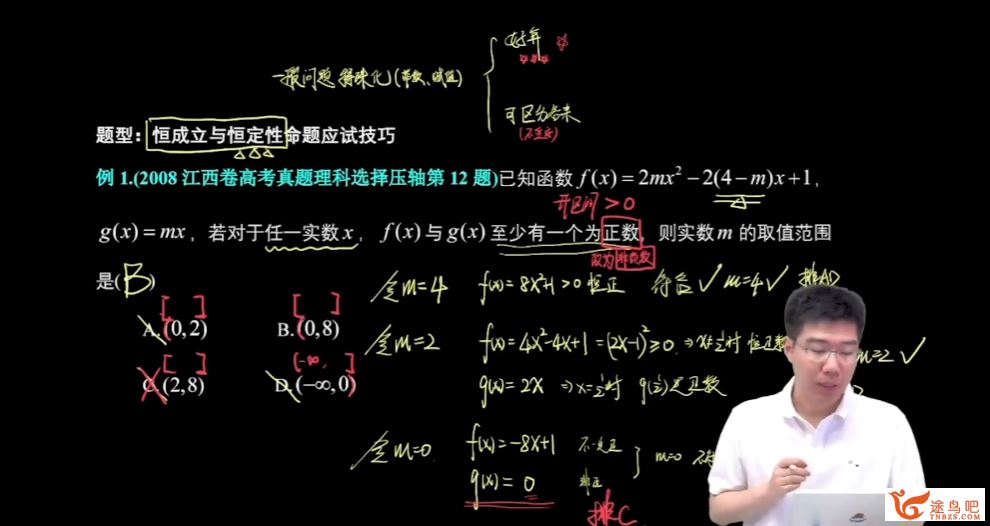 好算
一般问题特殊化(带数、赋值)
可区分答案
题型：恒成立与恒定性命题应试技巧
例 1.(2008 江西卷高考真题理科选择压轴第 12 题)已知函数 f(x)=2mx²-2(4-m)x+1，
开区间>0
g(x)=mx，若对于任一实数 x，f(x)与 g(x)至少有一个为正数，则实数 m 的取值范围
改为非负数
是( B )
令m=4 f(x)=8x²+1>0 恒正 符合 ✓ m=4 ✓ 排AD
[ ] [ ]
A.(0,2) B.(0,8)
令m=2 f(x)=4x²-4x+1=(2x-1)²≥0 ⇒ x≠½时 恒正数 m=2 ✓
[ ] (-∞, ]
C.(2,8) D.(-∞,0)
g(x)=2x ⇒x=½时 g(½)是正数
令m=0 f(x)=-8x+1 不一定正
m=0
g(x)=0 非正
排C
途鸟吧
TNBZS.COM